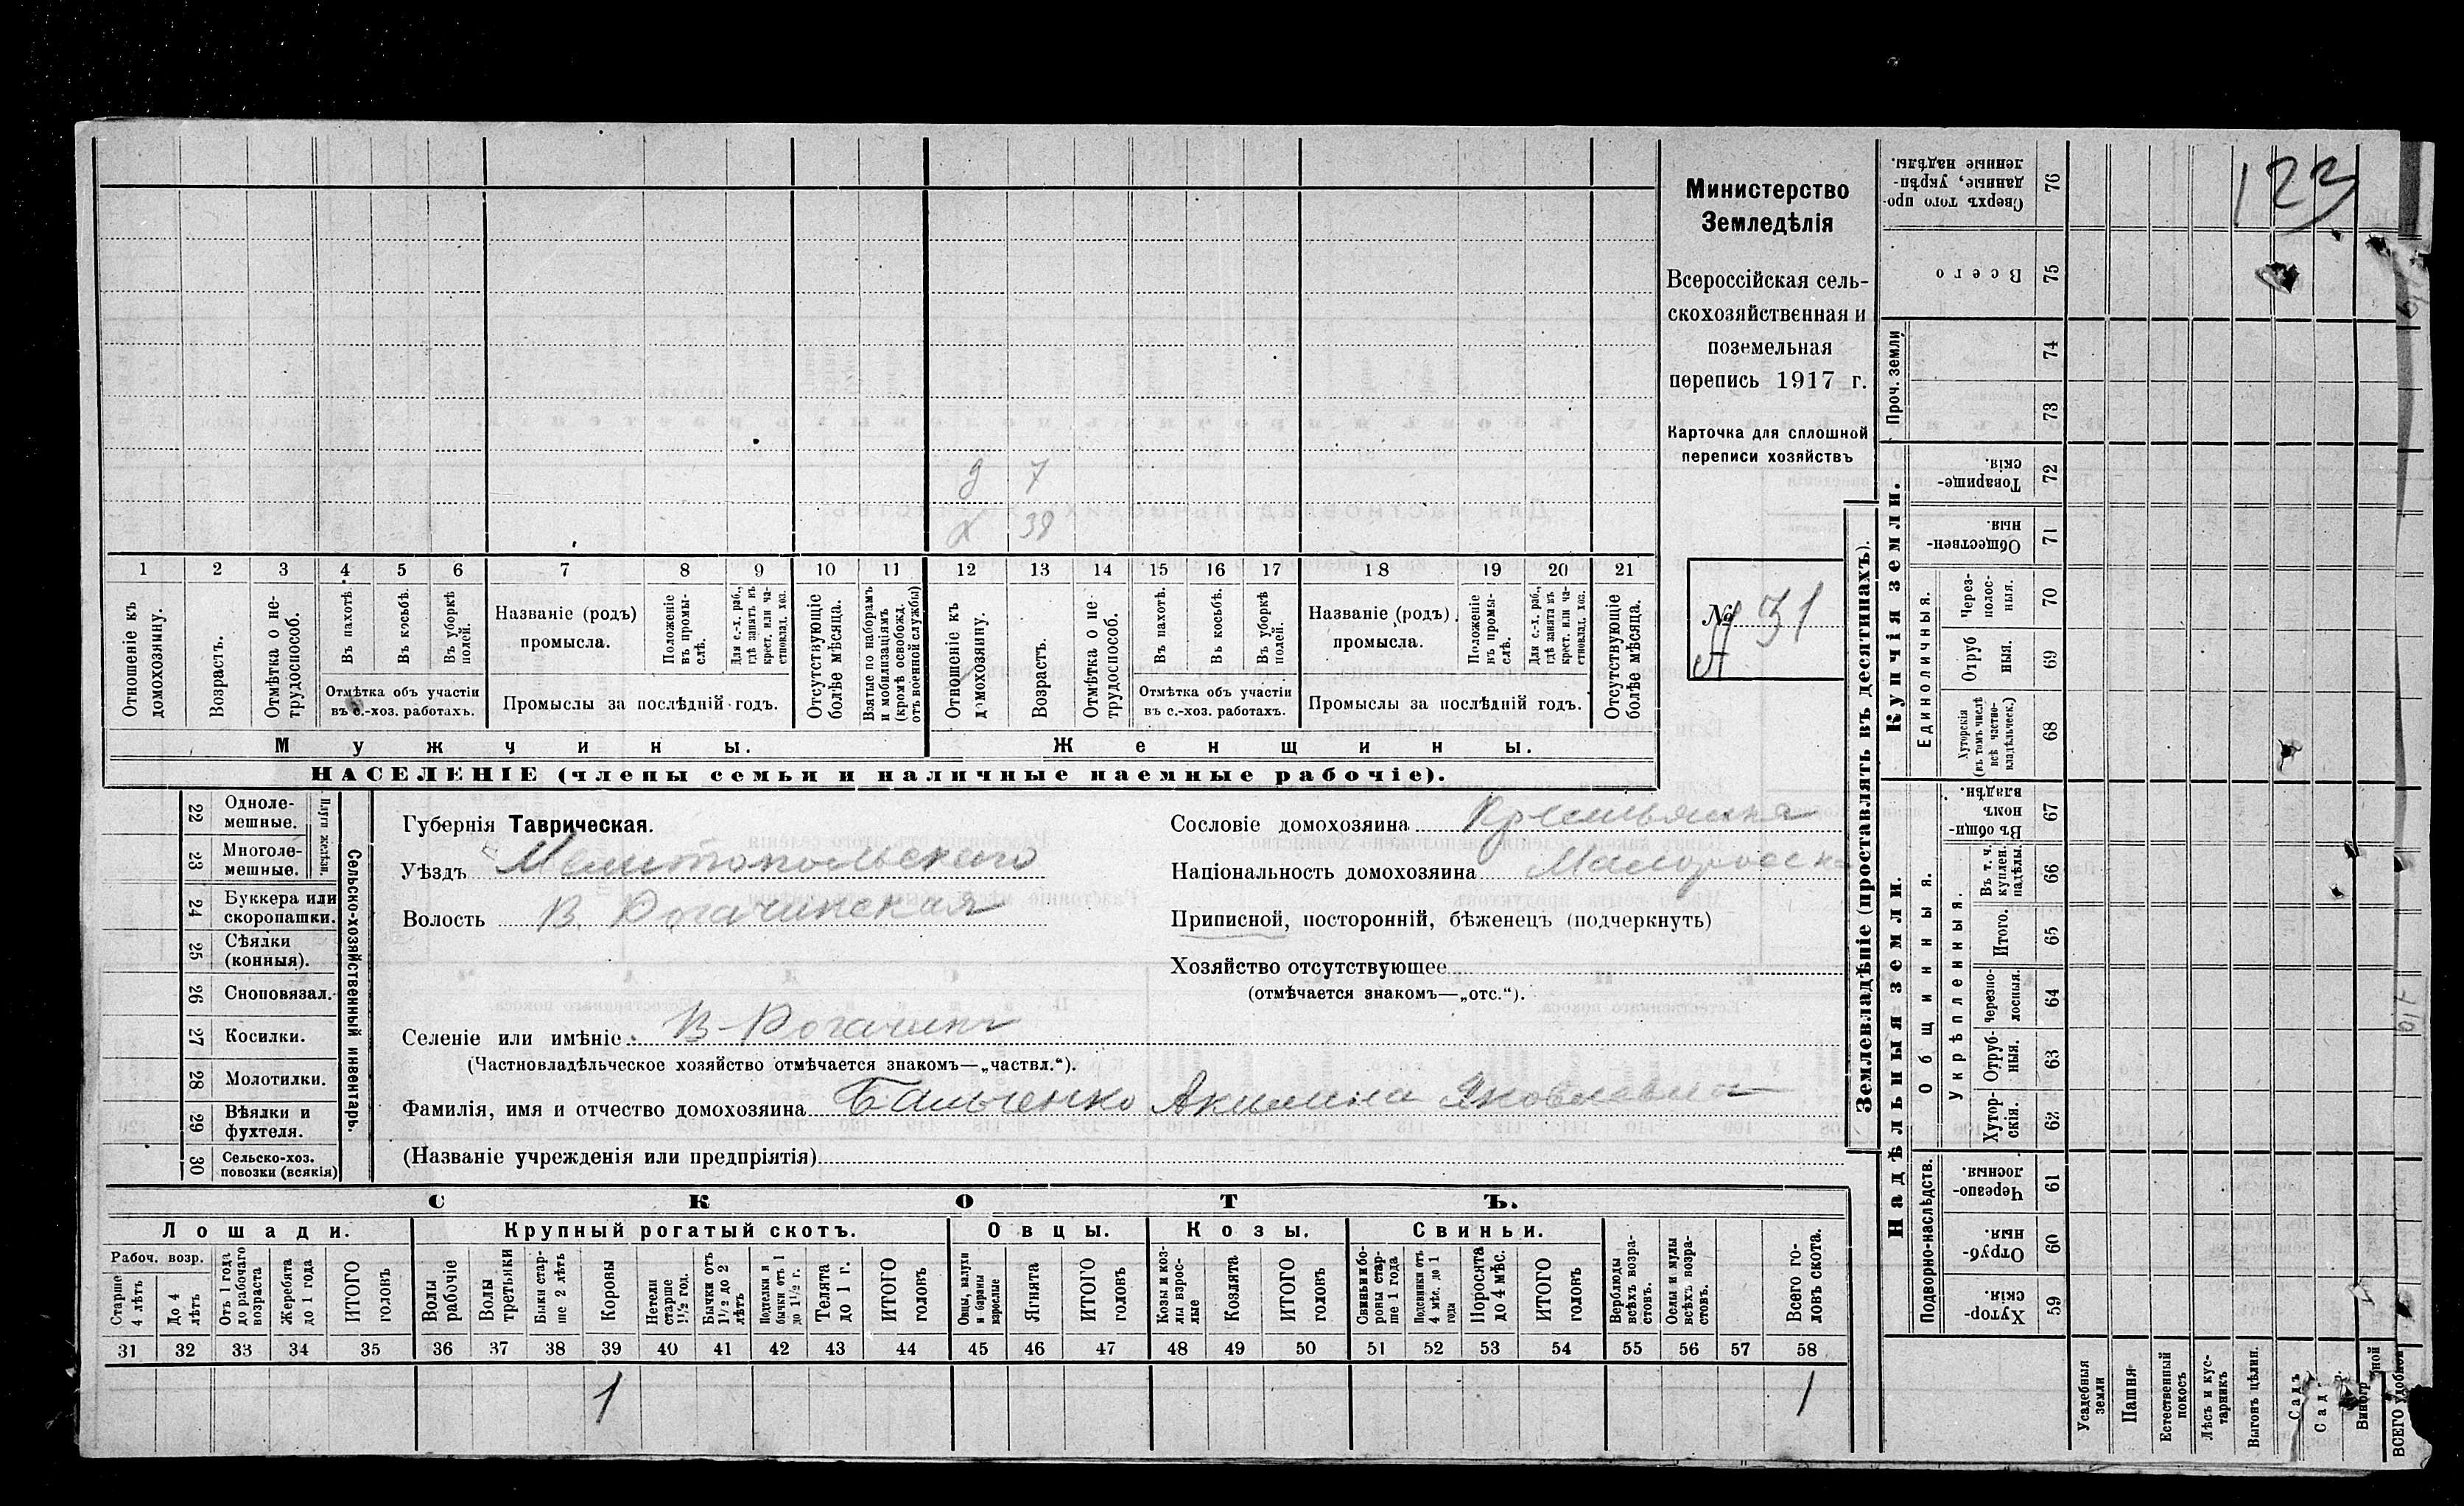 123
Министерство
Земледѣлія
Всероссійская сель-
скохозяйственная и
поземельная
перепись 1917 г.
Карточка для сплошной
переписи хозяйствъ
№ 31
А
д 7
х 38
1 2 3 4 5 6 7 8 9 10 11 12 13 14 15 16 17 18 19 20 21
Отношеніе къ домохозяину.
Возрастъ.
Отмѣтка о не-трудоспособ.
Въ пахотѣ.
Въ косьбѣ.
Въ уборкѣ полей.
Отмѣтка объ участіи
въ с.-хоз. работахъ.
Названіе (родъ)
промысла.
Положеніе въ промы-слѣ.
Для с.-х. раб., гдѣ занятъ въ крест. или ча-стновлад. хоз.
Промыслы за послѣдній годъ.
Отсутствующіе болѣе мѣсяца.
Взятые по наборамъ и мобилизаціямъ (кромѣ освобожд. отъ военной службы)
Отношеніе къ домохозяину.
Возрастъ.
Отмѣтка о не-трудоспособ.
Въ пахотѣ.
Въ косьбѣ.
Въ уборкѣ полей.
Отмѣтка объ участіи
въ с.-хоз. работахъ.
Названіе (родъ)
промысла.
Положеніе въ промы-слѣ.
Для с.-х. раб., гдѣ занятъ въ крест. или ча-стновлад. хоз.
Промыслы за послѣдній годъ.
Отсутствующіе болѣе мѣсяца.
Мужчины.
Женщины.
НАСЕЛЕНІЕ (члены семьи и наличные наемные рабочіе).
Сельско-хозяйственный инвентарь.
Плуги желѣзн.
22 Одноле-мешные.
23 Многоле-мешные.
24 Буккера или скоропашки.
25 Сѣялки (конныя).
26 Сноповязал.
27 Косилки.
28 Молотилки.
29 Вѣялки и фухтеля.
30 Сельско-хоз. повозки (всякія)
Губернія Таврическая.
Уѣздъ Мелитопольского
Волость В. Рогачинская
Сословіе домохозяина Крестьянка
Національность домохозяина Малоросска
Приписной, посторонній, бѣженецъ (подчеркнуть)
Хозяйство отсутствующее
(отмѣчается знакомъ—„отс.“).
Селеніе или имѣніе В-Рогачик
(Частновладѣльческое хозяйство отмѣчается знакомъ—„частвл.“).
Фамилія, имя и отчество домохозяина Бальченко Акилина Яковлевна
(Названіе учрежденія или предпріятія)
СКОТЪ.
Лошади.
Крупный рогатый скотъ.
Овцы.
Козы.
Свиньи.
Рабоч. возр.
Старше 4 лѣтъ
До 4 лѣтъ
Отъ 1 года до рабочаго возраста
Жеребята до 1 года
ИТОГО головъ
Волы рабочіе
Волы третьяки
Быки стар-ше 2 лѣтъ
Коровы
Нетели старше 1½ гол.
Бычки отъ 1½ до 2 лѣтъ
Подтелки и бычки отъ 1 до 1½ г.
Телята до 1 г.
ИТОГО головъ
Овцы, валухи и бараны взрослые
Ягнята
ИТОГО головъ
Козы и коз-лы взрос-лые
Козлята
ИТОГО головъ
Свиньи и бо-ровы стар-ше 1 года
Подсвинки отъ 4 мѣс. до 1 года
Поросята до 4 мѣс.
ИТОГО головъ
Верблюды всѣхъ возра-стовъ.
Ослы и мулы всѣхъ возра-стовъ.
Всего го-ловъ скота.
31 32 33 34 35 36 37 38 39 40 41 42 43 44 45 46 47 48 49 50 51 52 53 54 55 56 57 58
1 1
Землевладѣніе (проставлять въ десятинахъ).
Купчія земли.
Надѣльныя земли.
76 Сверхъ того про-данные, укрѣп-ленные надѣлы.
75 Всего
Проч. земли
74
73
72 Товарище-скія.
71 Обществен-ныя.
Единоличныя.
70 Через-полос-ныя.
69 Отруб ныя.
68 Хуторскія (въ томъ числѣ всѣ частно-владѣльческ.)
Общинныя.
67 Въ общин-номъ владѣн.
Укрѣпленныя.
66 Въ т. ч. куплен. надѣлы.
65 Итого.
64 Черезпо-лосныя.
63 Отруб-ныя.
62 Хутор-скія.
Подворно-наслѣдств.
61 Черезпо-лосныя.
60 Отруб-ныя
59 Хутор-скія.
Усадебныя земли
Пашня
Естественный покосъ
Лѣсъ и кус-тарникъ
Выгонъ цѣлин.
Садъ
Сад
ВСЕГО удобной